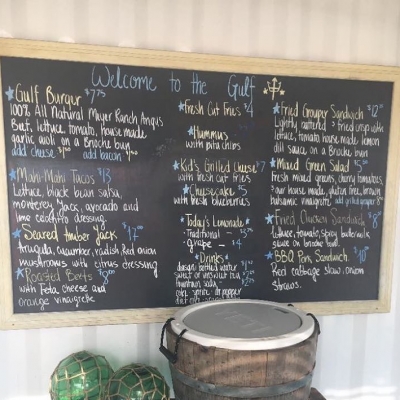 Welcome to the Gulf
Gulf Burger $7.75
100% All Natural Meyer Ranch Angus
Beef, lettuce, tomato, house made
garlic aioli on a Brioche bun
add cheese add bacon
Mahi-Mahi Tacos $13
Lettuce, black bean salsa,
monterey jack, avocado and
lime dressing.
Seared Amber Jack $17.00
Arugula, cucumber, radish, Red onion
mushrooms with citrus dressing
Roasted Beets $8
with Feta cheese and
orange vinaigrette
Fresh Cut Fries $4
Hummus
with pita chips
Kid's Grilled Cheese $7
with fresh cut fries
Cheesecake $5
with fresh blueberries
Today's Lemonade
Traditional - $3
grape - $4
Drinks
bottled water
sweet or unsweet tea
fountain soda
coke sprite dr pepper
diet coke
Fried Grouper Sandwich $12
Lightly battered & fried crisp with
lettuce, tomato, house made lemon
dill sauce on a Brioche bun
Mixed Green Salad
Fresh mixed greens, cherry tomatoes,
our house made, gluten free, brown
balsamic vinaigrette add grilled grouper $8
Fried Chicken Sandwich $8
Lettuce, tomato, spicy buttermilk
sauce on brioche bun.
BBQ Pork Sandwich $10
Red cabbage slaw, onion
straws.